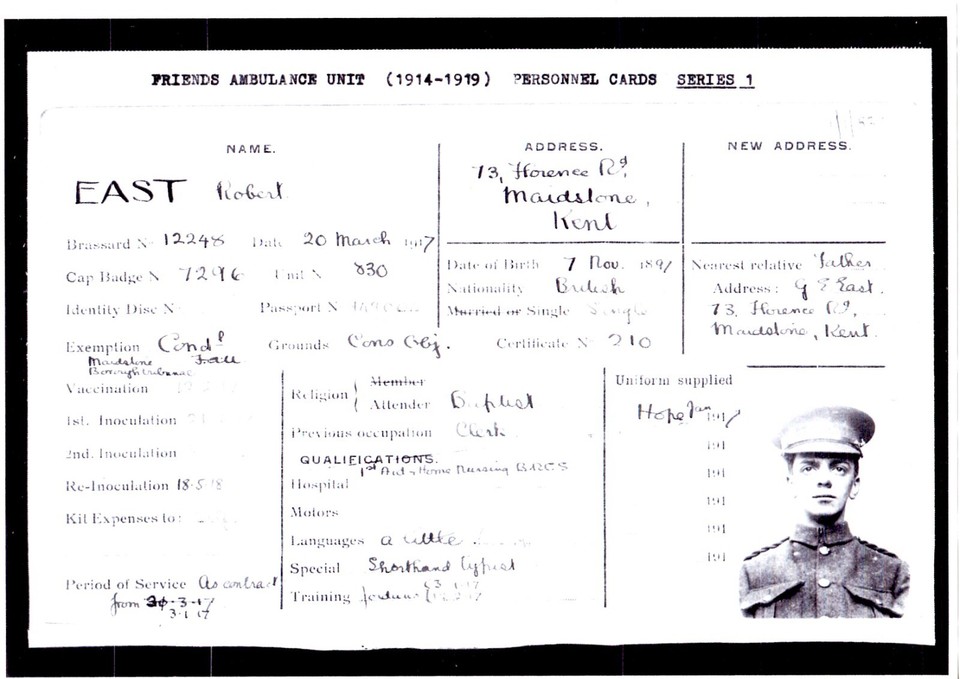 FRIENDS AMBULANCE UNIT (1914-1919) PERSONNEL CARDS SERIES 1
NAME.
EAST Robert
Brassard No 12248 Date 20 March 1917
Cap Badge N 7296 Unit N 830
Identity Disc N Passport N
Exemption Condl Grounds Cons Obj. Certificate No 210
Maidstone
Borough tribunal
Vaccination
1st. Inoculation
2nd. Inoculation
Re-Inoculation 18.5.18
Kit Expenses to:
Period of Service As contract
from 3-17
3-1-17
ADDRESS.
73, Florence Rd,
Maidstone,
Kent
Date of Birth 7 Nov. 1891
Nationality British
Married or Single Single
Religion Member
Attender Baptist
Previous occupation Clerk
QUALIFICATIONS.
1st Aid & Home Nursing BRCS
Hospital
Motors
Languages a little
Special Shorthand Typist
Training Jordans
NEW ADDRESS.
Nearest relative Father
Address: G E East.
73, Florence Rd,
Maidstone, Kent.
Uniform supplied
Hope Jan 1917
191
191
191
191
191